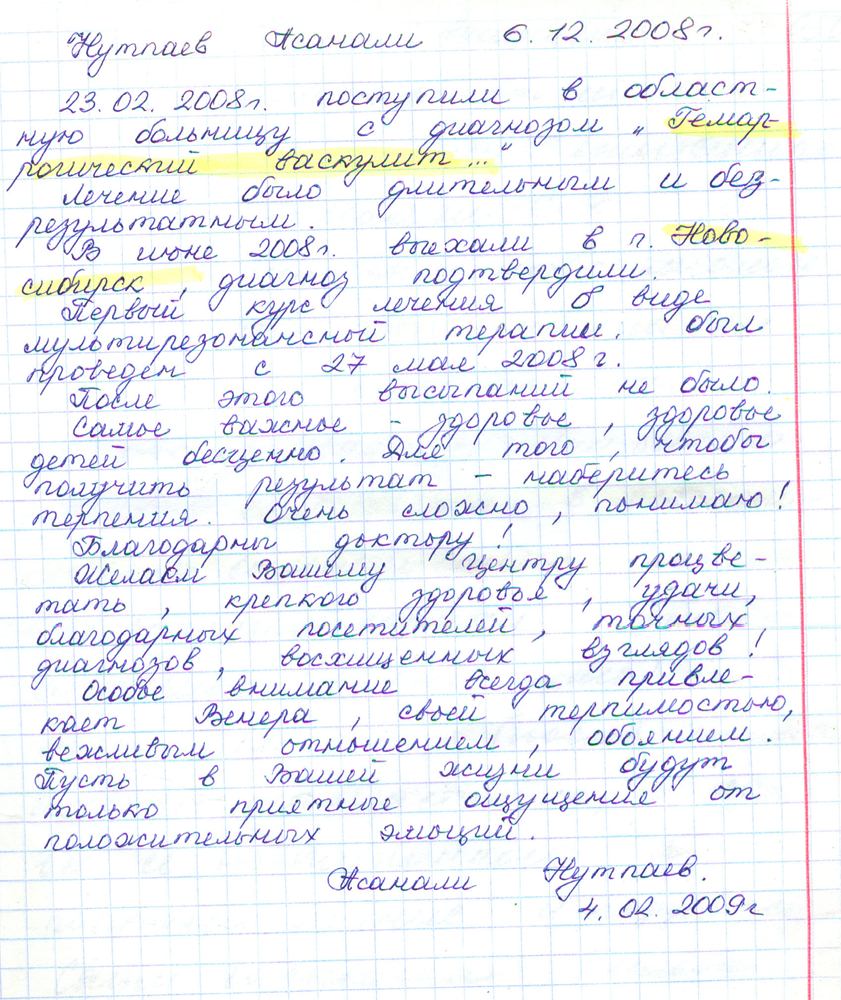 Нутпаев Жанали 6.12.2008г.
23.02.2008г. поступили в област-
ную больницу с диагнозом „Гемар-
рогический васкулит..."
Лечение было длительным и без-
результатным.
В июне 2008г. выехали в г. Ново-
сибирск, диагноз подтвердили.
Первый курс лечения в виде
мультирезонансный терапии. был
проведен с 27 мая 2008г.
После этого высыпаний не было.
Самое важное - здоровье, здоровье
детей бесценно. Для того, чтобы
получить результат - наберитесь
терпения. Очень сложно, понимаю!
Благодарны доктору!
Желаем Вашему Центру процве-
тать, крепкого здоровья, удачи,
благодарных посетителей, точных
диагнозов, восхищенных взглядов!
Особое внимание всегда привле-
кает Венера, своей терпимостью,
вежливым отношением, обоянием.
Пусть в Вашей жизни будут
только приятные ощущение от
положительных эмоций.
Жанали Нутпаев.
4.02.2009г